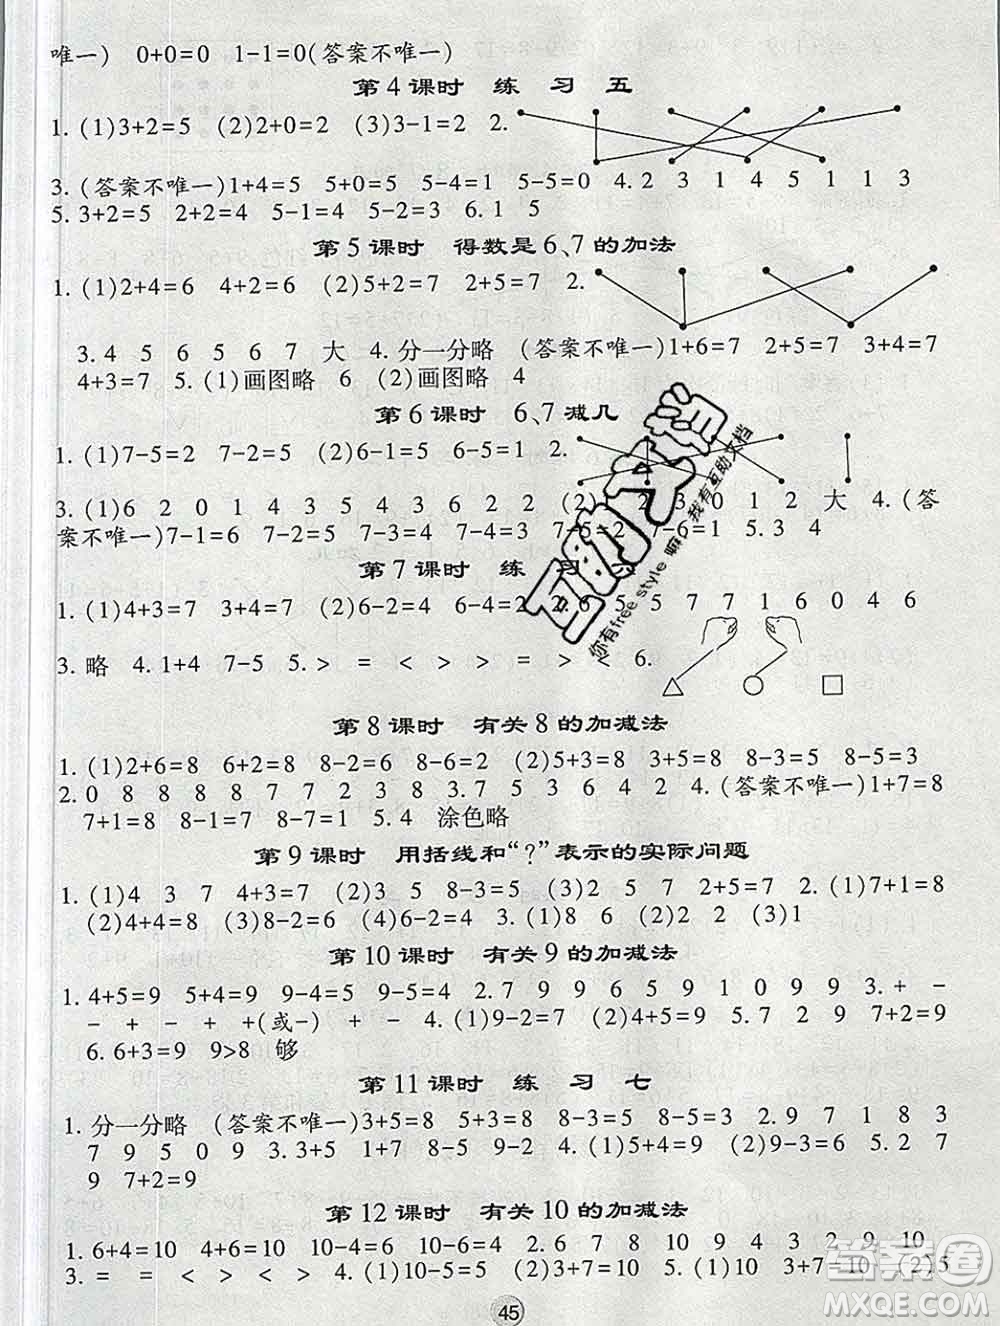 唯一) 0+0=0 1-1=0(答案不唯一)
第4课时 练 习 五
1. (1)3+2=5 (2)2+0=2 (3)3-1=2 2.
3. (答案不唯一)1+4=5 5+0=5 5-4=1 5-5=0 4. 2 3 1 4 5 1 1 3
5. 3+2=5 2+2=4 5-1=4 5-3=2 6. 1 5
第5课时 得数是6、7的加法
1. (1)2+4=6 4+2=6 (2)5+2=7 2+5=7 2.
3. 4 5 6 5 6 7 大 4. 分一分略 (答案不唯一)1+6=7 2+5=7
4+3=7 5. (1)画图略 6 (2)画图略 4
第6课时 6、7减几
1. (1)7-5=2 7-2=5 (2)6-1=5 6-5=1 2.
3. (1)6 2 0 1 4 3 5 4 3 6 2 2 (2) 2 3 0 1 2 大 4. (答
案不唯一)7-1=6 7-2=5 7-3=4 7-4=3 7-5=2 7-6=1 5. 3 4
第7课时 练 习 六
1. (1)4+3=7 3+4=7 (2)6-2=4 6-4=2 2. 6 5 5 7 7 1 6 0 4 6
3. 略 4. 1+4 7-5 5. > = < > > = > < 6.
第8课时 有关8的加减法
1. (1)2+6=8 6+2=8 8-2=6 8-6=2 (2)5+3=8 3+5=8 8-3=5 8-5=3
2. 0 8 8 8 8 7 7 2 3 8 3. 7 5 3 6 4 2 4. (答案不唯一)1+7=8
7+1=8 8-1=7 8-7=1 5. 4 涂色略
第9课时 用括线和“?”表示的实际问题
1. (1)4 3 7 4+3=7 (2)3 5 8 8-3=5 (3)2 5 7 2+5=7 2. (1)7+1=8
(2)4+4=8 (3)8-2=6 (4)6-2=4 3. (1)8 (2)2 (3)1
第10课时 有关9的加减法
1. 4+5=9 5+4=9 9-4=5 9-5=4 2. 7 9 9 6 5 9 1 0 9 9 3. + -
- + - + +(或-) + - 4. (1)9-2=7 (2)4+5=9 5. 7 2 9
6. 6+3=9 9>8 够
第11课时 练 习 七
1. 分一分略 (答案不唯一)3+5=8 5+3=8 8-3=5 8-5=3 2. 9 7 1 8 3
7 9 5 0 9 3. 3+5 1+7 9-1 4. (1)2 7 9 2+7=9 (2)9-3=6 5. 2
9 7+2=9
第12课时 有关10的加减法
1. 6+4=10 4+6=10 10-4=6 10-6=4 2. 6 7 8 10 9 4 3 2 9 10
3. = = < > < > 4. (1)10-5=5 (2)5+5=10 5. (1)3 10 3+7=10 (2)5
45
互助文档
你有free style嘛，我有互助文档
答案圈
MXQE.COM